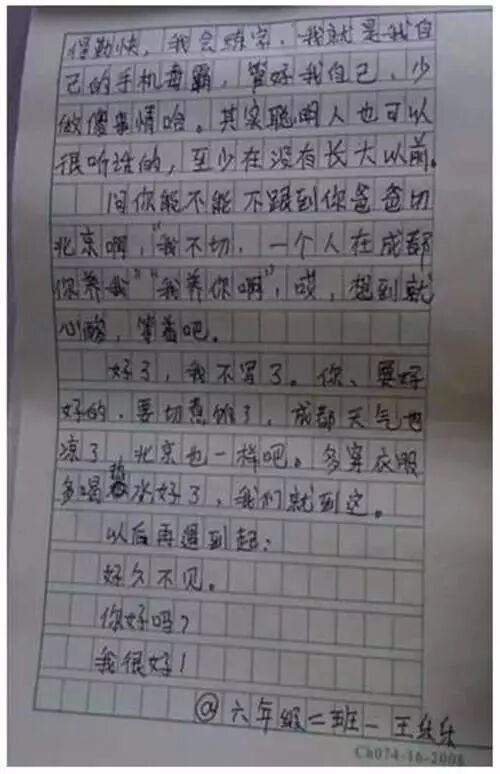 很勤快,我会练字,我就是我自
己的手机毒霸,管好我自己,少
做傻事情哈。其实聪明人也可以
很听话的,至少在没有长大以前。
问你能不能不跟到你爸爸切
北京啊,“我不切,一个人在成都
你养我”“我养你啊”,哎,想到就
心酸,等着吧。
好了,我不写了。你、要好
好的,要切煮饭了,成都天气也
凉了,北京也一样吧。多穿衣服
多喝热水好了,我们就到这。
以后再遇到起:
好久不见。
你好吗?
我很好!
@六年级二班一王乐乐
Ch074-16-2008